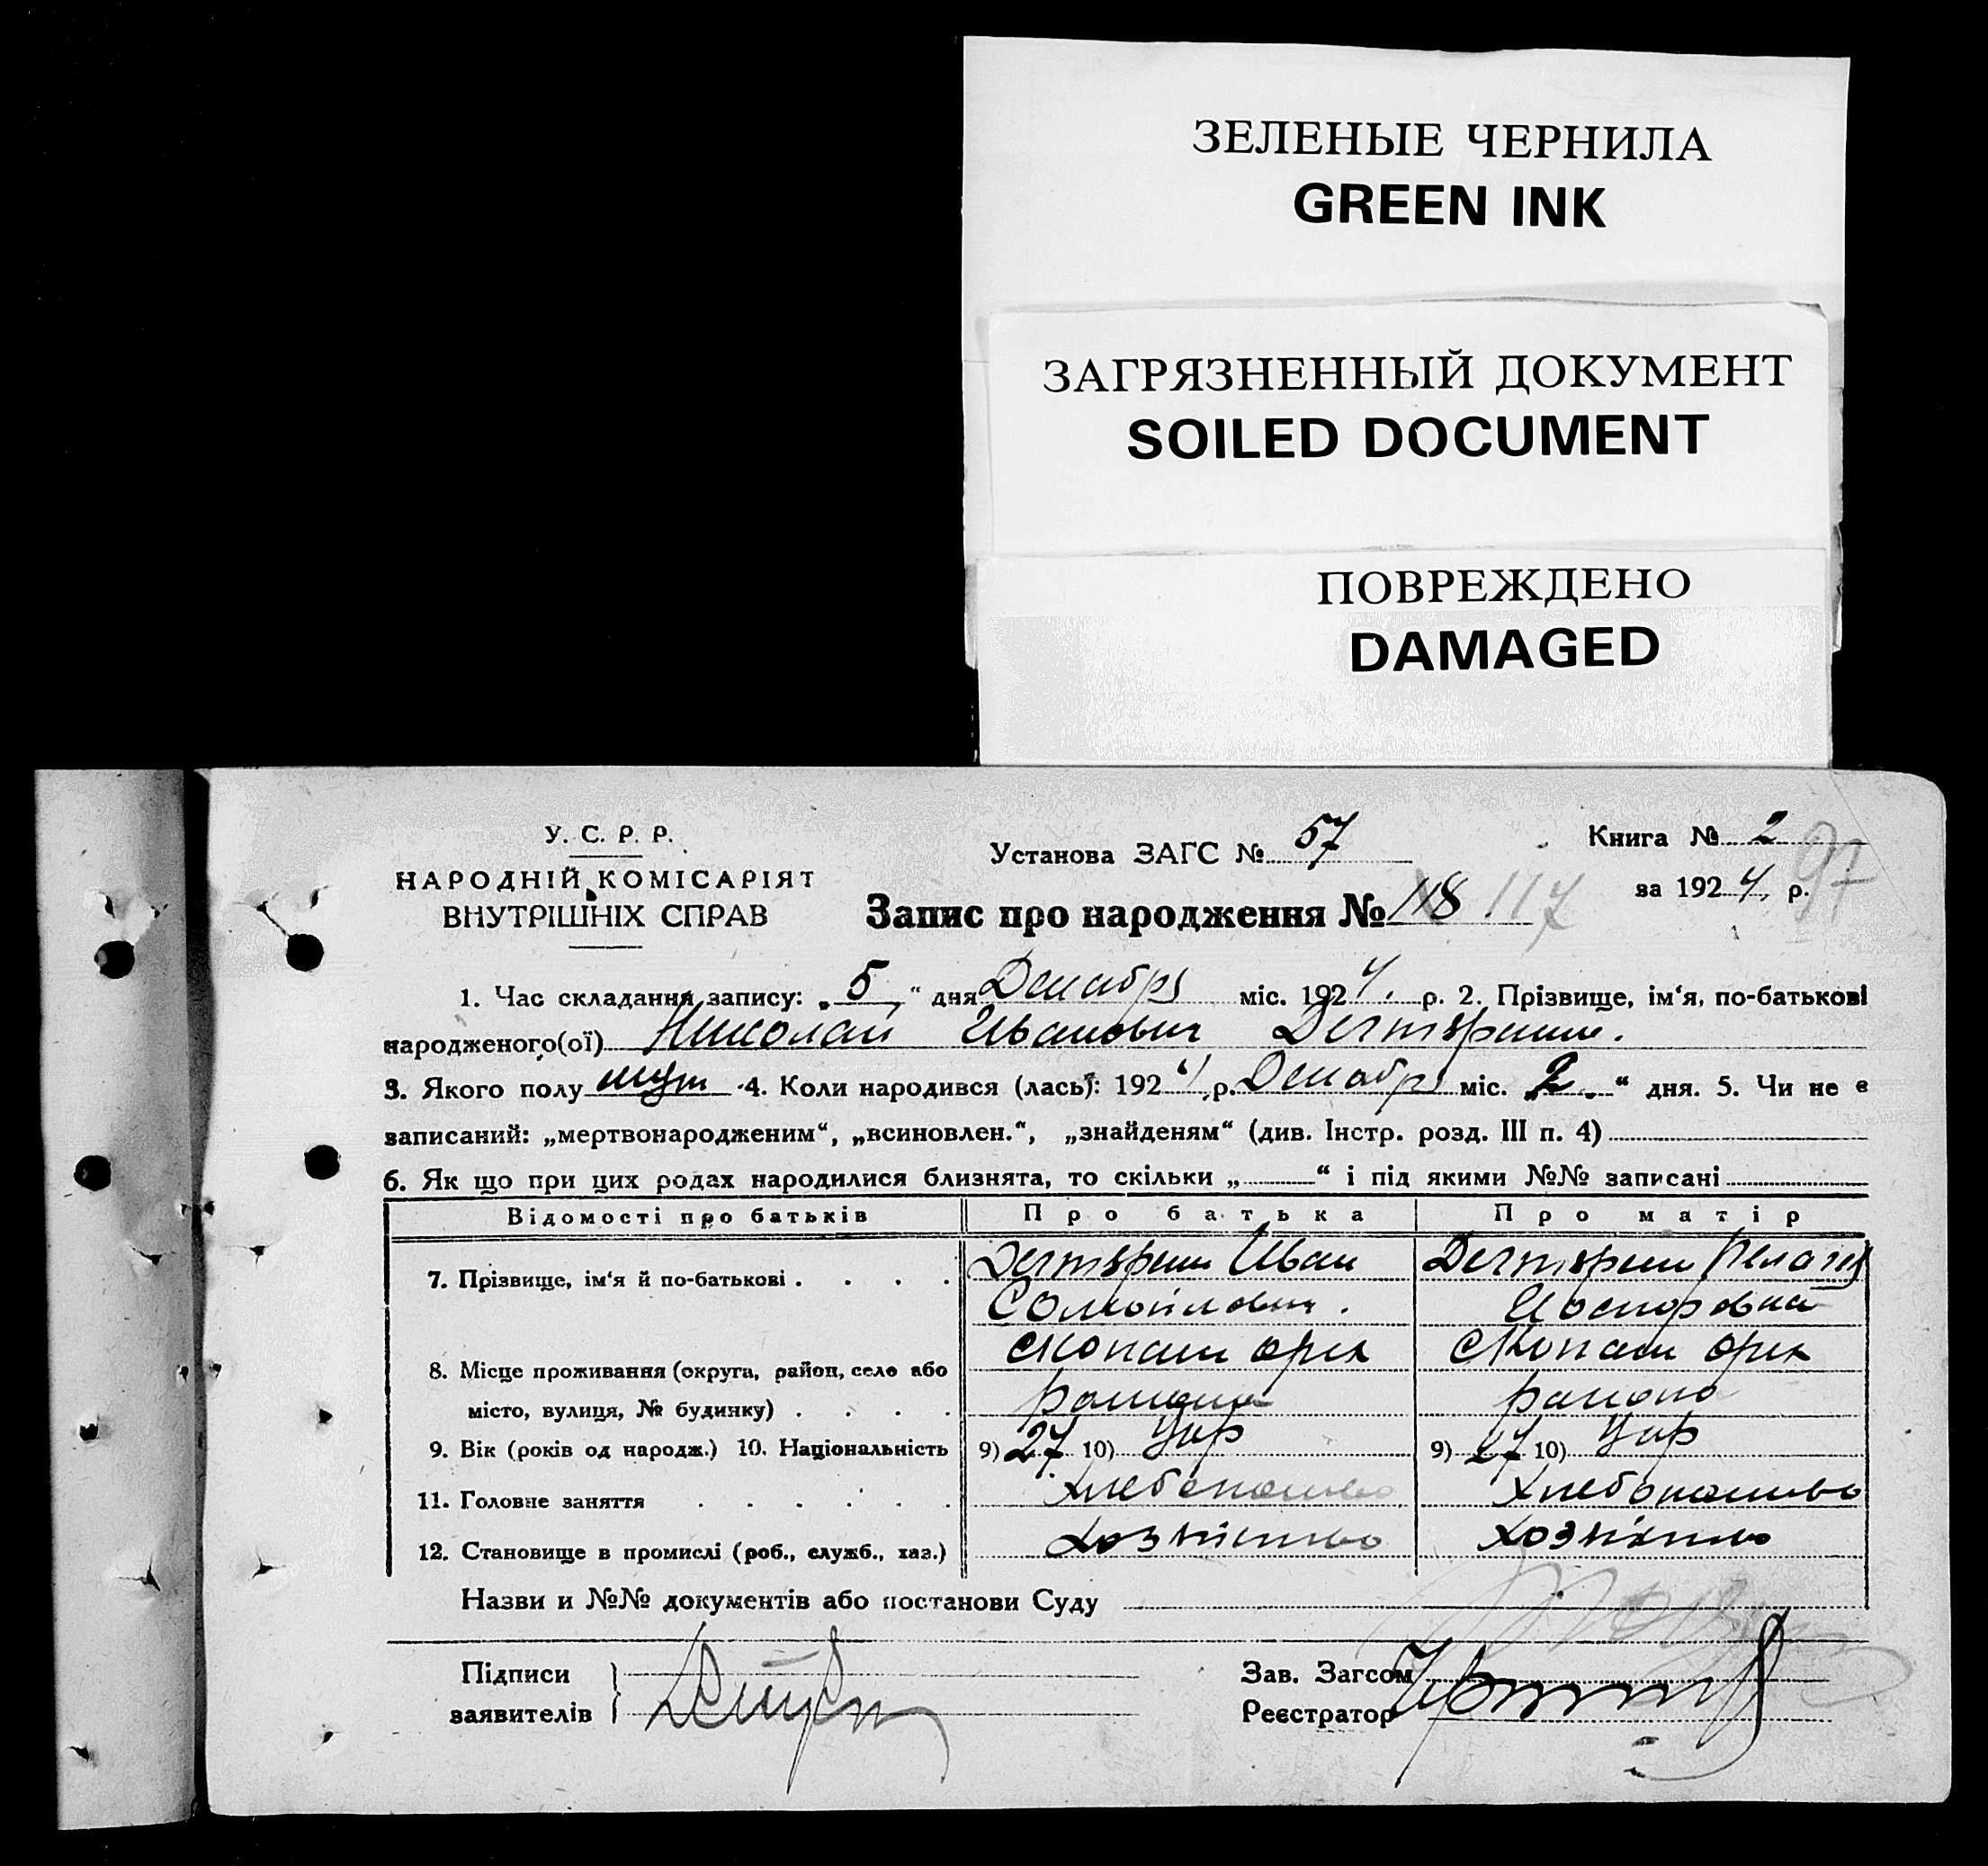 ЗЕЛЕНЫЕ ЧЕРНИЛА
GREEN INK
ЗАГРЯЗНЕННЫЙ ДОКУМЕНТ
SOILED DOCUMENT
ПОВРЕЖДЕНО
DAMAGED
У. С. Р. Р.
НАРОДНІЙ КОМІСАРІЯТ
ВНУТРІШНІХ СПРАВ
Установа ЗАГС № 57
Книга № 2
97
за 1924 р.
Запис про народження № 118 117
1. Час складання запису: „5“ дня Декабря міс. 1924. р. 2. Прізвище, ім‘я, по-батькові
народженого(ої) Николай Иванович
3. Якого полу муж 4. Коли народився (лась): 1924 р. Декабря міс. „2“ дня. 5. Чи не є
записаний: „мертвонародженим“, „всиновлен.“, „знайденям“ (див. Інстр. розд. III п. 4)
6. Як що при цих родах народилися близнята, то скільки „ “ і під якими №№ записані
Відомості про батьків Про батька Про матір
7. Прізвище, ім‘я й по-батькові . . . . Иван Пелагея
8. Місце проживання (округа, район, село або
місто, вулиця, № будинку) . . . . района района
9. Вік (років од народж.) 10. Національність 9) 27 10) Укр 9) 27 10) Укр
11. Головне заняття . . . . . . Хлебопашество Хлебопашество
12. Становище в промислі (роб., служб., хаз.)
Назви и №№ документів або постанови Суду
Підписи
заявителів
Зав. Загсом
Реєстратор